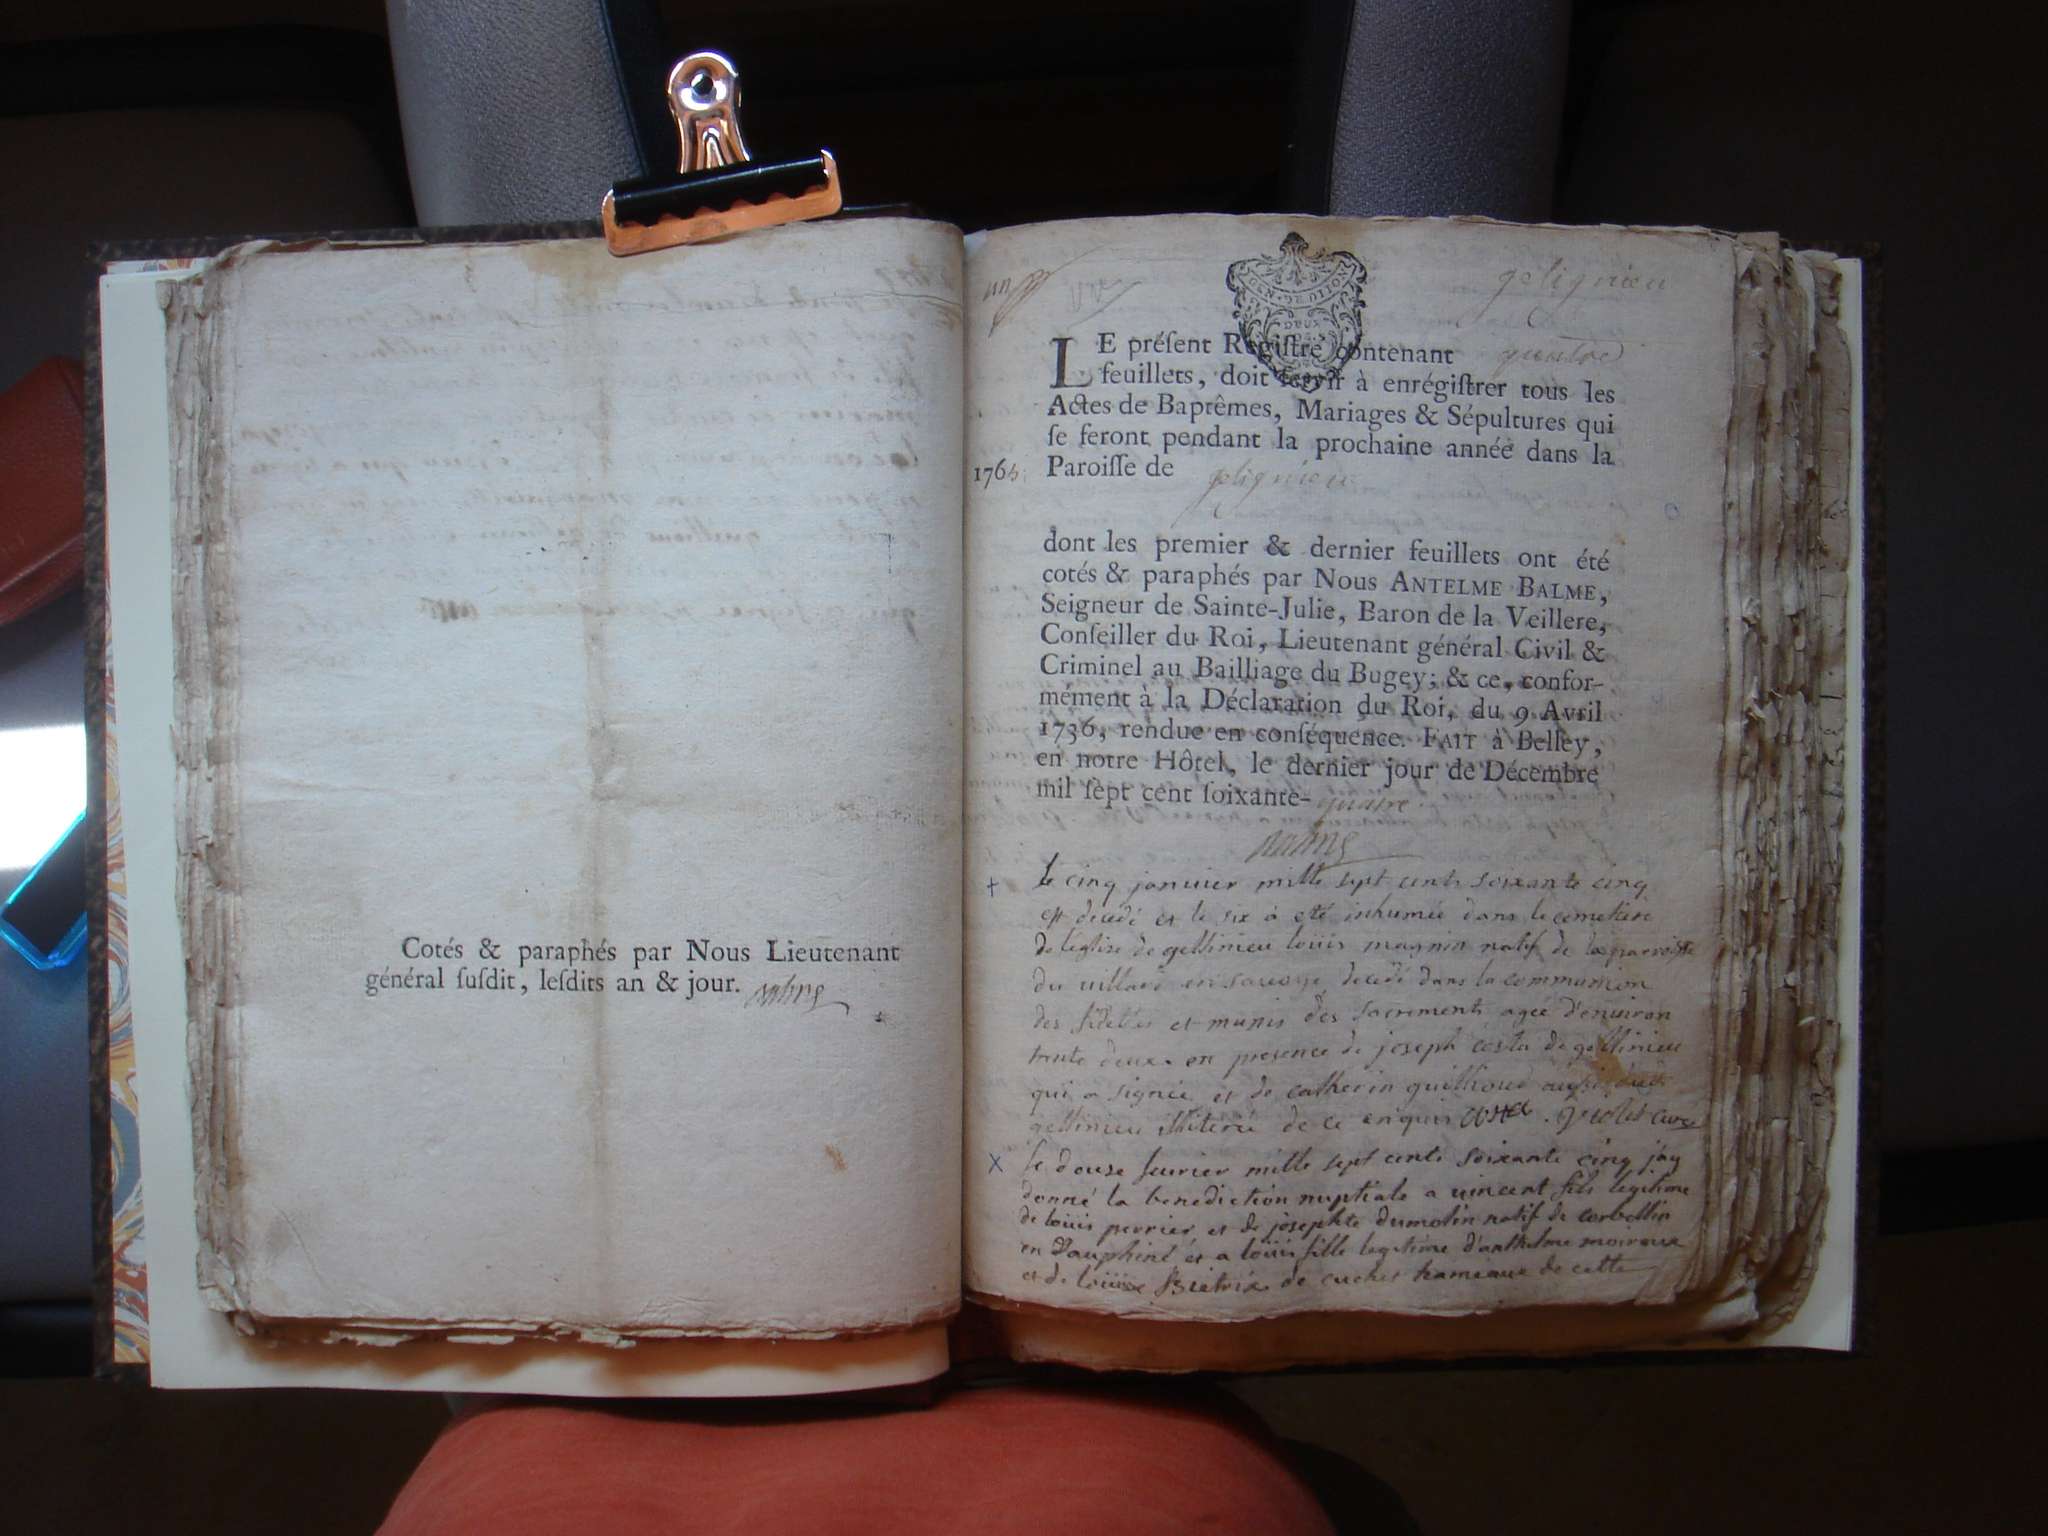 Cotés & paraphés par Nous Lieutenant
général ſuſdit, leſdits an & jour.
un
gelignieu
LE préſent Regiſtre contenant quatre
feuillets, doit ſervir à enrégiſtrer tous les
Actes de Baptêmes, Mariages & Sépultures qui
ſe feront pendant la prochaine année dans la
1765.
Paroiſſe de gelignieu
dont les premier & dernier feuillets ont été
cotés & paraphés par Nous ANTELME BALME,
Seigneur de Sainte-Julie, Baron de la Veillere,
Conſeiller du Roi, Lieutenant général Civil &
Criminel au Bailliage du Bugey; & ce, confor-
mément à la Déclaration du Roi, du 9 Avril
1736, rendue en conſéquence. FAIT à Belley,
en notre Hôtel, le dernier jour de Décembre
mil ſept cent ſoixante-quatre.
+ le cinq janvier mille sept cents soixante cinq
est decedé et le six a eté inhumée dans le cemetiere
de leglise de gellinieu loüis magnin natif de la parroisse
du villard en savoye, decedé dans la communion
des fidelles et munis des sacrements agée d'environ
trente deux. en presence de joseph costa de gellinieu
qui a signée et de catherin guillioud aussi dud.
gellinieu illiterée de ce enquis costa. Violet curé
x le douse fevrier mille sept cents soixante cinq jay
donné la benediction nuptiale a vincent fils legitime
de loüis perrier et de josephte dumolin natif de corbellin
en Dauphiné et a loüise fille legitime d'anthelme moiroux
et de loüise Bietrix de cuchet hameaux de cette